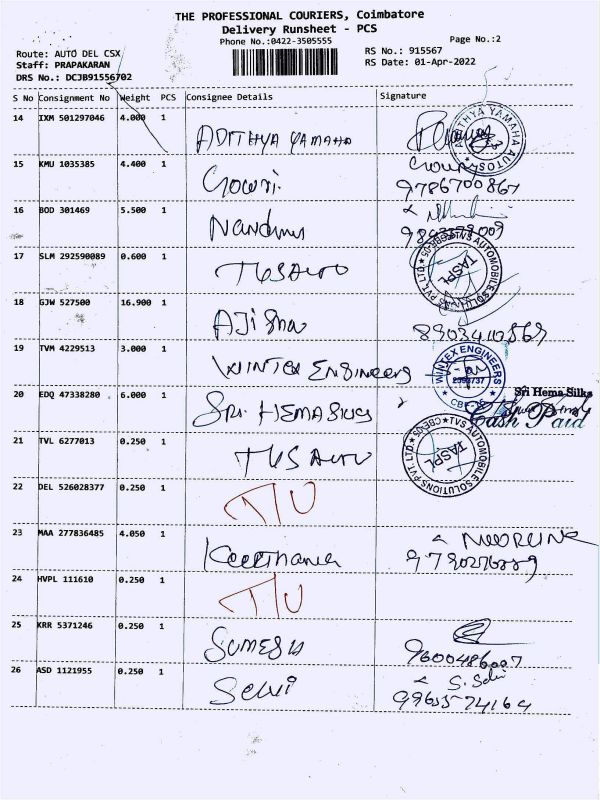 THE PROFESSIONAL COURIERS, Coimbatore
Delivery Runsheet - PCS
Phone No.:0422-3505555
Page No.:2
Route: AUTO DEL CSX
RS No.: 915567
Staff: PRAPAKARAN
RS Date: 01-Apr-2022
DRS No.: DCJB91556702
S No Consignment No Weight PCS Consignee Details Signature
14 IXM 501297046 4.000 1 ADITHYA YAMAHA
15 KMU 1035385 4.400 1 Gowri Gowri
9786700867
16 BOD 301469 5.500 1
17 SLM 292590089 0.600 1 TVS AUTO
TVS AUTOMOBILE SOLUTIONS PVT. LTD. TASPL
18 GJW 527500 16.900 1
19 TVM 4229513 3.000 1 WINTEX ENGINEERS
WINTEX ENGINEERS
20 EDQ 47338280 6.000 1 SRI HEMA SILKS Sri Hema Silks
Cash Paid
21 TVL 6277013 0.250 1 TVS AUTO
TVS AUTOMOBILE SOLUTIONS PVT. LTD. CBE-05 TASPL
22 DEL 526028377 0.250 1
23 MAA 277836485 4.050 1 Keerthana
24 HVPL 111610 0.250 1
25 KRR 5371246 0.250 1 SUMESH
26 ASD 1121955 0.250 1 Selvi S. Selvi